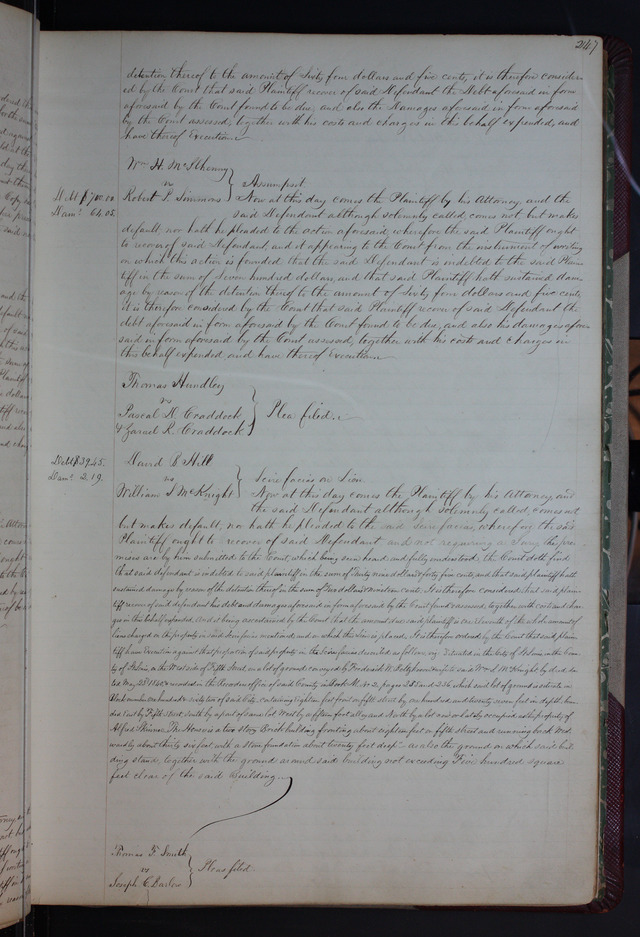 247
detention thereof to the amount of Sixty four dollars and five cents, it is therefore consider-
ed by the Court that said Plaintiff recover of said Defendant the Debt aforesaid in form
aforesaid by the Court found to be due, and also the Damages aforesaid in form aforesaid
by the Court assessed, together with his costs and charges in this behalf expended, and
have thereof Execution
Wm H. McIlhenny
vs
Assumpsit
Debt $700.00
Robert P. Simmons
Now at this day comes the Plaintiff by his Attorney, and the
Dams 64.05.
said Defendant although solemnly called, comes not but makes
default nor hath he pleaded to the action aforesaid, wherefore the said Plaintiff ought
to recover of said Defendant, and it appearing to the Court from the instrument of writing
on which this action is founded that the said Defendant is indebted to the said Plain-
tiff in the sum of Seven hundred dollars, and that said Plaintiff hath sustained dam-
age by reason of the detention thereof to the amount of Sixty four dollars and five cents
it is therefore considered by the Court that said Plaintiff recover of said Defendant the
debt aforesaid in form aforesaid by the Court found to be due, and also his damages afore-
said in form aforesaid by the Court assessed, together with his costs and charges in
this behalf expended and have thereof Execution
Thomas Hundley
vs
Pascal H. Craddock
Plea filed.
& R. Craddock
Debt $39.45.
David B Hill
Dams 2.19.
vs
Scire facias on Lien
William S McKnight
Now at this day comes the Plaintiff by his Attorney, and
the said Defendant allthough solemnly called, comes not
but makes default, nor hath he pleaded to the said scire facias, wherefore the said
Plaintiff ought to recover of said Defendant and not requiring a Jury the pre-
mises are by him submitted to the Court, which being seen heard and fully understood, the Court doth find
that said defendant is indebted to said plaintiff in the sum of Thirty nine dollars forty five cents, and that said plaintiff hath
sustained damage by reason of the detention thereof in the sum of Two dollars nineteen cents. It is therefore considered that said plain-
tiff recover of said defendant his debt and damages aforesaid in form aforesaid by the Court found & assessed, together with costs and char-
ges in this behalf expended. And it being ascertained by the Court that the amount due said plaintiff is one eleventh of the whole amount of
liens charged on the property in said Scire facias mentioned, and on which the lien is placed, It is therefore ordered by the Court that said plain-
tiff have Execution against that proportion of said property in the Scire facias described as follows, viz: Situated in the City of St. Louis in the Coun-
ty of St Louis, on the West side of Fifth Street on a lot of ground conveyed by Frederick W. and wife to said Wm S. McKnight by deed da-
ted May 28 1840 & recorded in the Recorders office of said County in Book M. No 2, pages 255 and 256, which said lot of ground is situate in
Block number one hundred & sixty two of said City, containing Eighteen feet front on fifth street by one hundred and twenty seven feet in depth, boun-
ded East by Fifth Street, South by a part of same lot, West by a fifteen foot alley and North by a lot now or lately occupied as the property of
Alfred Skinner. The House is a two story Brick building fronting about eighteen feet on fifth street and running back West-
wardly about thirty six feet with a stone foundation about twenty feet deep as also the ground on which said buil-
ding stands, together with the ground around said building not exceeding Five hundred square
feet clear of the said Building
Thomas F. Smith
vs
Pleas filed.
Joseph C. Barlow